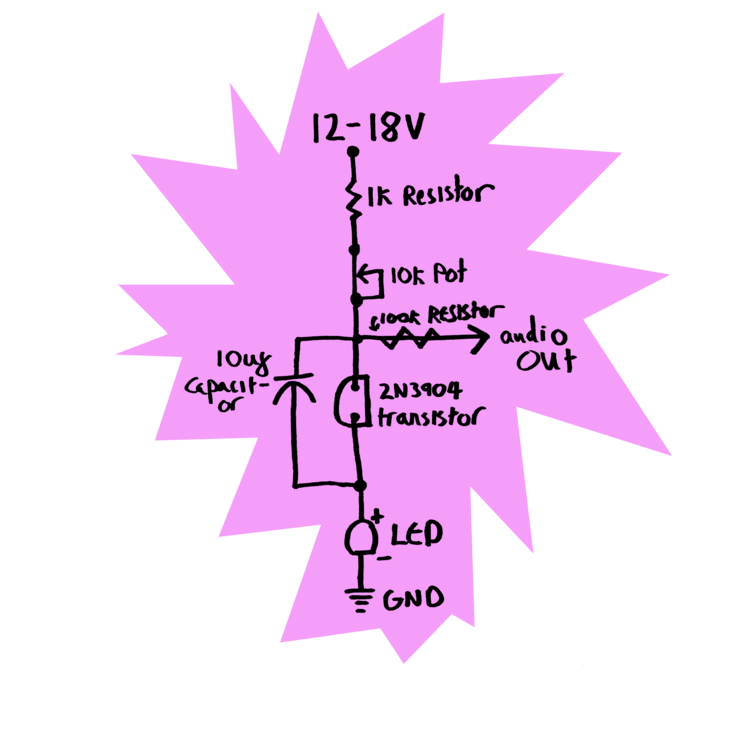 12-18V
1K Resistor
10K Pot
100K Resistor
audio
out
10uf
capacit-
or
2N3904
transistor
+
LED
-
GND